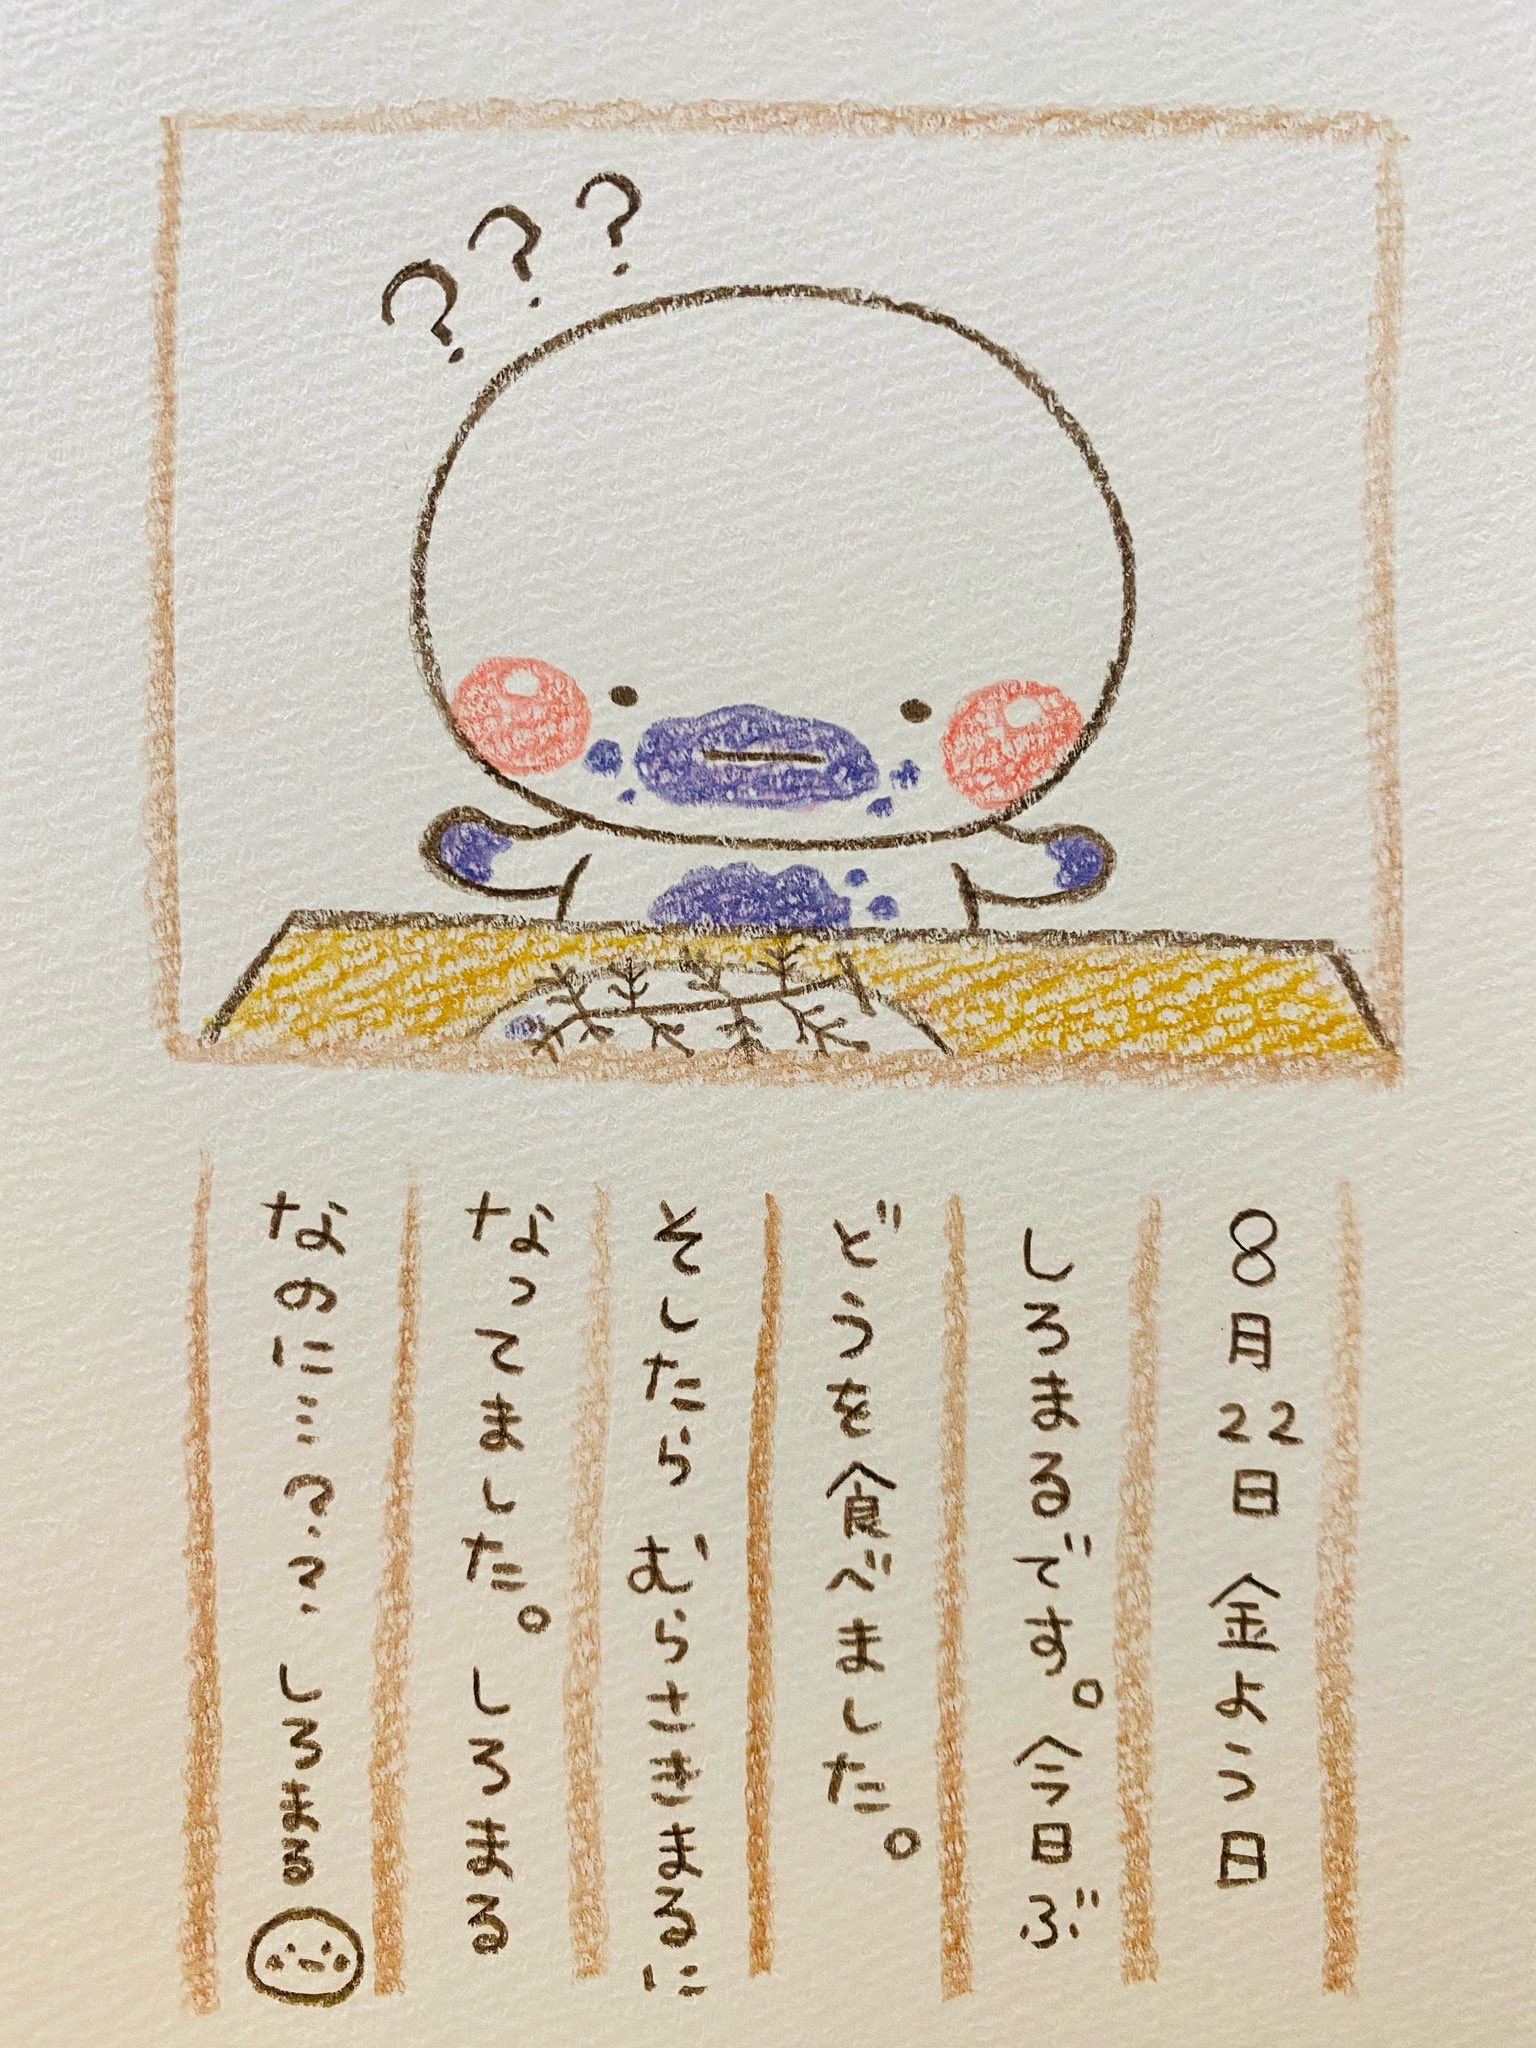 ???
8月22日 金よう日
しろまるです。今日ぶ
どうを食べました。
そしたら むらさきまるに
なってました。 しろまる
なのに…?? しろまる